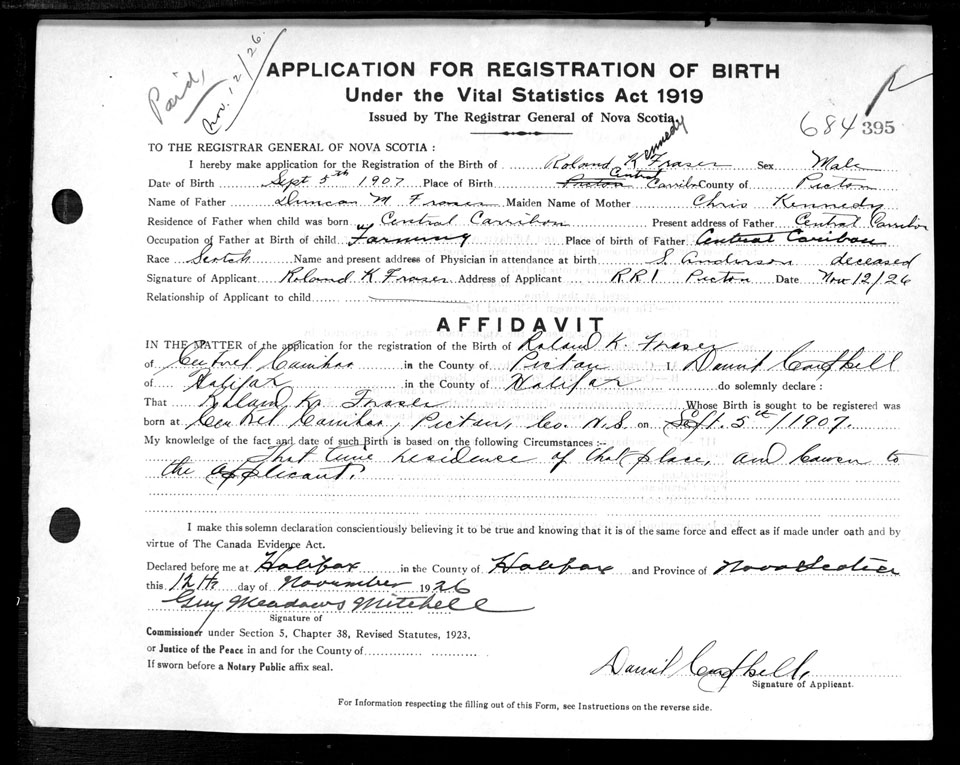 Paid,
Nov. 12/26.
APPLICATION FOR REGISTRATION OF BIRTH
Under the Vital Statistics Act 1919
Issued by The Registrar General of Nova Scotia
684 395
TO THE REGISTRAR GENERAL OF NOVA SCOTIA :
Kennedy
I hereby make application for the Registration of the Birth of Roland K Fraser Sex Male
Central
Date of Birth Sept 5th 1907 Place of Birth Pictou Carribo County of Pictou
Name of Father Duncan M Fraser Maiden Name of Mother Chris Kennedy
Residence of Father when child was born Central Carribou Present address of Father Central Carribou
Occupation of Father at Birth of child Farming Place of birth of Father Central Caribou
Race Scotch Name and present address of Physician in attendance at birth S. Anderson deceased
Signature of Applicant Roland K Fraser Address of Applicant RR1 Pictou Date Nov 12/26
Relationship of Applicant to child
AFFIDAVIT
IN THE MATTER of the application for the registration of the Birth of Roland K. Fraser
of Central Caribou in the County of Pictou I, Campbell
of Halifax in the County of Halifax do solemnly declare :
That Roland K. Fraser Whose Birth is sought to be registered was
born at Central Caribou, Pictou, Co. N.S. on Sept. 5th/1907.
My knowledge of the fact and date of such Birth is based on the following Circumstances :—
That time residence of that place, and to
the applicant.
I make this solemn declaration conscientiously believing it to be true and knowing that it is of the same force and effect as if made under oath and by
virtue of The Canada Evidence Act.
Declared before me at Halifax in the County of Halifax and Province of Nova Scotia
this 12th day of November 1926
Guy Meadows Mitchell
Signature of
Commissioner under Section 5, Chapter 38, Revised Statutes, 1923,
or Justice of the Peace in and for the County of
If sworn before a Notary Public affix seal.
Campbell,
Signature of Applicant.
For Information respecting the filling out of this Form, see Instructions on the reverse side.